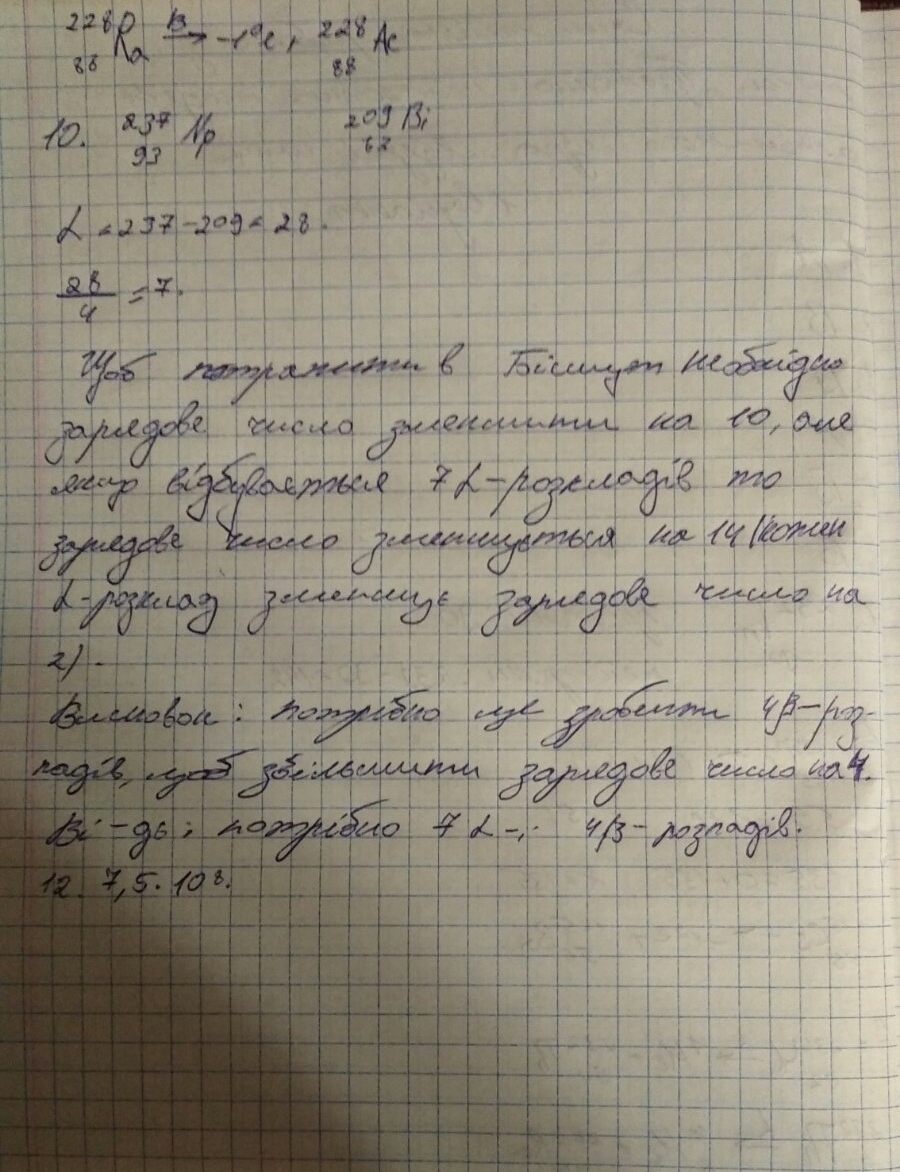 228 Ra β→ -1⁰e, 228 Ac
88 88
10. 237 Np 209 Bi
93 62
α = 237 - 209 = 28.
28/4 = 7.
Щоб потрапити в Бісмут необхідно
зарядове число зменшити на 10, але
якщо відбувається 7 α-розкладів то
зарядове число зменшується на 14 (кожен
α-розклад зменшує зарядове число на
2).
Висновок: потрібно ще зробити 4β-роз-
падів, щоб збільшити зарядове число на 4.
Ві-дь: потрібно 7 α-; 4β-розпадів.
12. 7,5·10⁸.